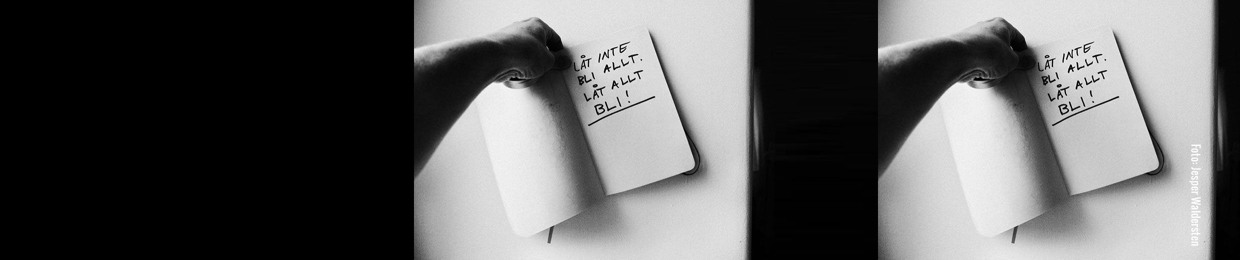 LÅT INTE
BLI ALLT.
LÅT ALLT
BLI!
LÅT INTE
BLI ALLT.
LÅT ALLT
BLI!
Foto: Jesper Waldersten